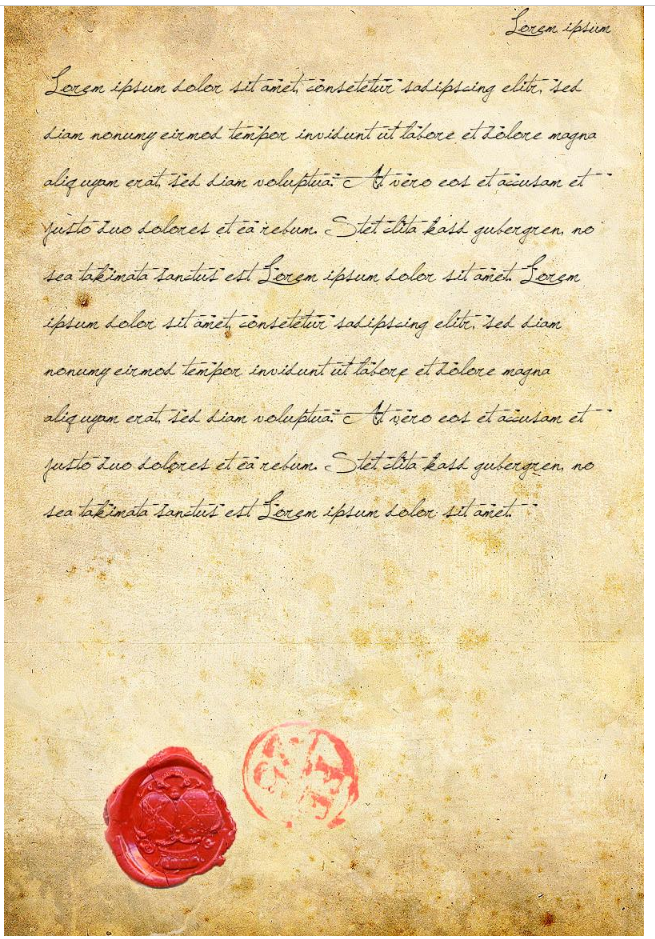 Lorem ipsum
Lorem ipsum dolor sit amet, consetetur sadipscing elitr, sed
diam nonumy eirmod tempor invidunt ut labore et dolore magna
aliquyam erat, sed diam voluptua. At vero eos et accusam et
justo duo dolores et ea rebum. Stet clita kasd gubergren, no
sea takimata sanctus est Lorem ipsum dolor sit amet. Lorem
ipsum dolor sit amet, consetetur sadipscing elitr, sed diam
nonumy eirmod tempor invidunt ut labore et dolore magna
aliquyam erat, sed diam voluptua. At vero eos et accusam et
justo duo dolores et ea rebum. Stet clita kasd gubergren, no
sea takimata sanctus est Lorem ipsum dolor sit amet.